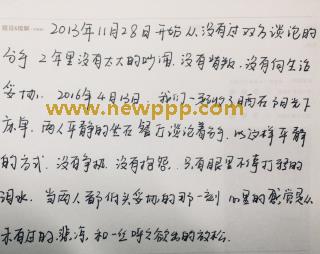 2013年11月28日开始从没有过双方谈论的
分手 2年里没有太大的吵闹.没有背叛.没有向生活
妥协. 2016年4月13日. 我们
两人平静的坐在餐厅谈论着分手.以这样平静
的方式.没有争执.没有抱怨.只有眼里不停打转的
泪水. 当两人都低头妥协的那一刻 心里的感觉是从
未有过的悲凉.和一丝呼之欲出的放松.
www.newppp.com